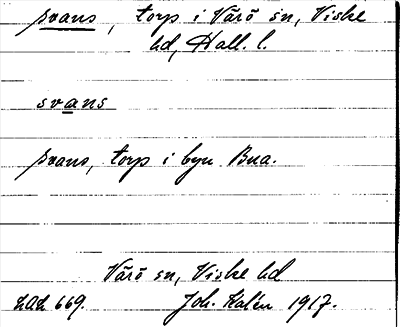 svans, torp i Värö sn, Viske
hd, Hall. l.
svans
svans, torp i byn Bua.
Värö sn, Viske hd
LAL 669. Joh. Kalén 1917.